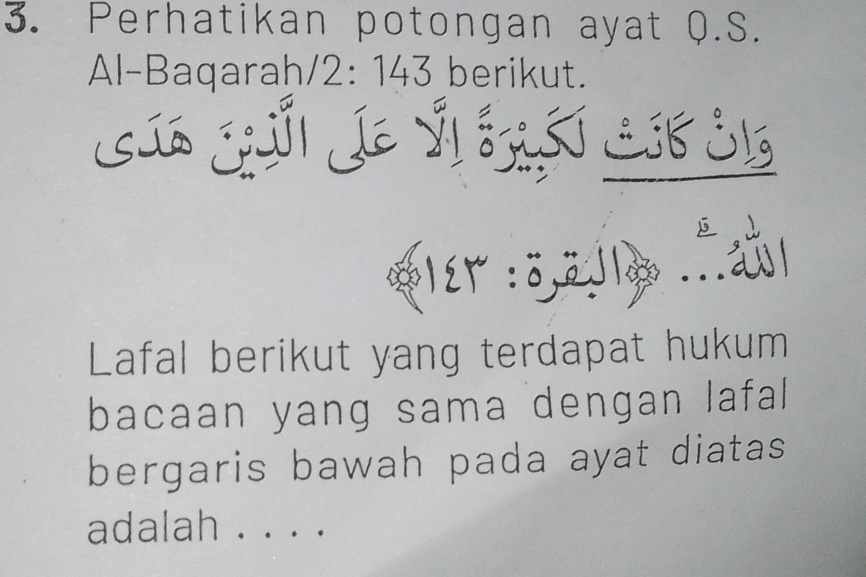 3. Perhatikan potongan ayat Q.S.
Al-Baqarah/2: 143 berikut.
وَاِنْ كَانَتْ لَكَبِيْرَةً اِلَّا عَلَى الَّذِيْنَ هَدَى
اللّٰهُ ۗ... ﴿البقرة : ١٤٣﴾
Lafal berikut yang terdapat hukum
bacaan yang sama dengan lafal
bergaris bawah pada ayat diatas
adalah . . . .